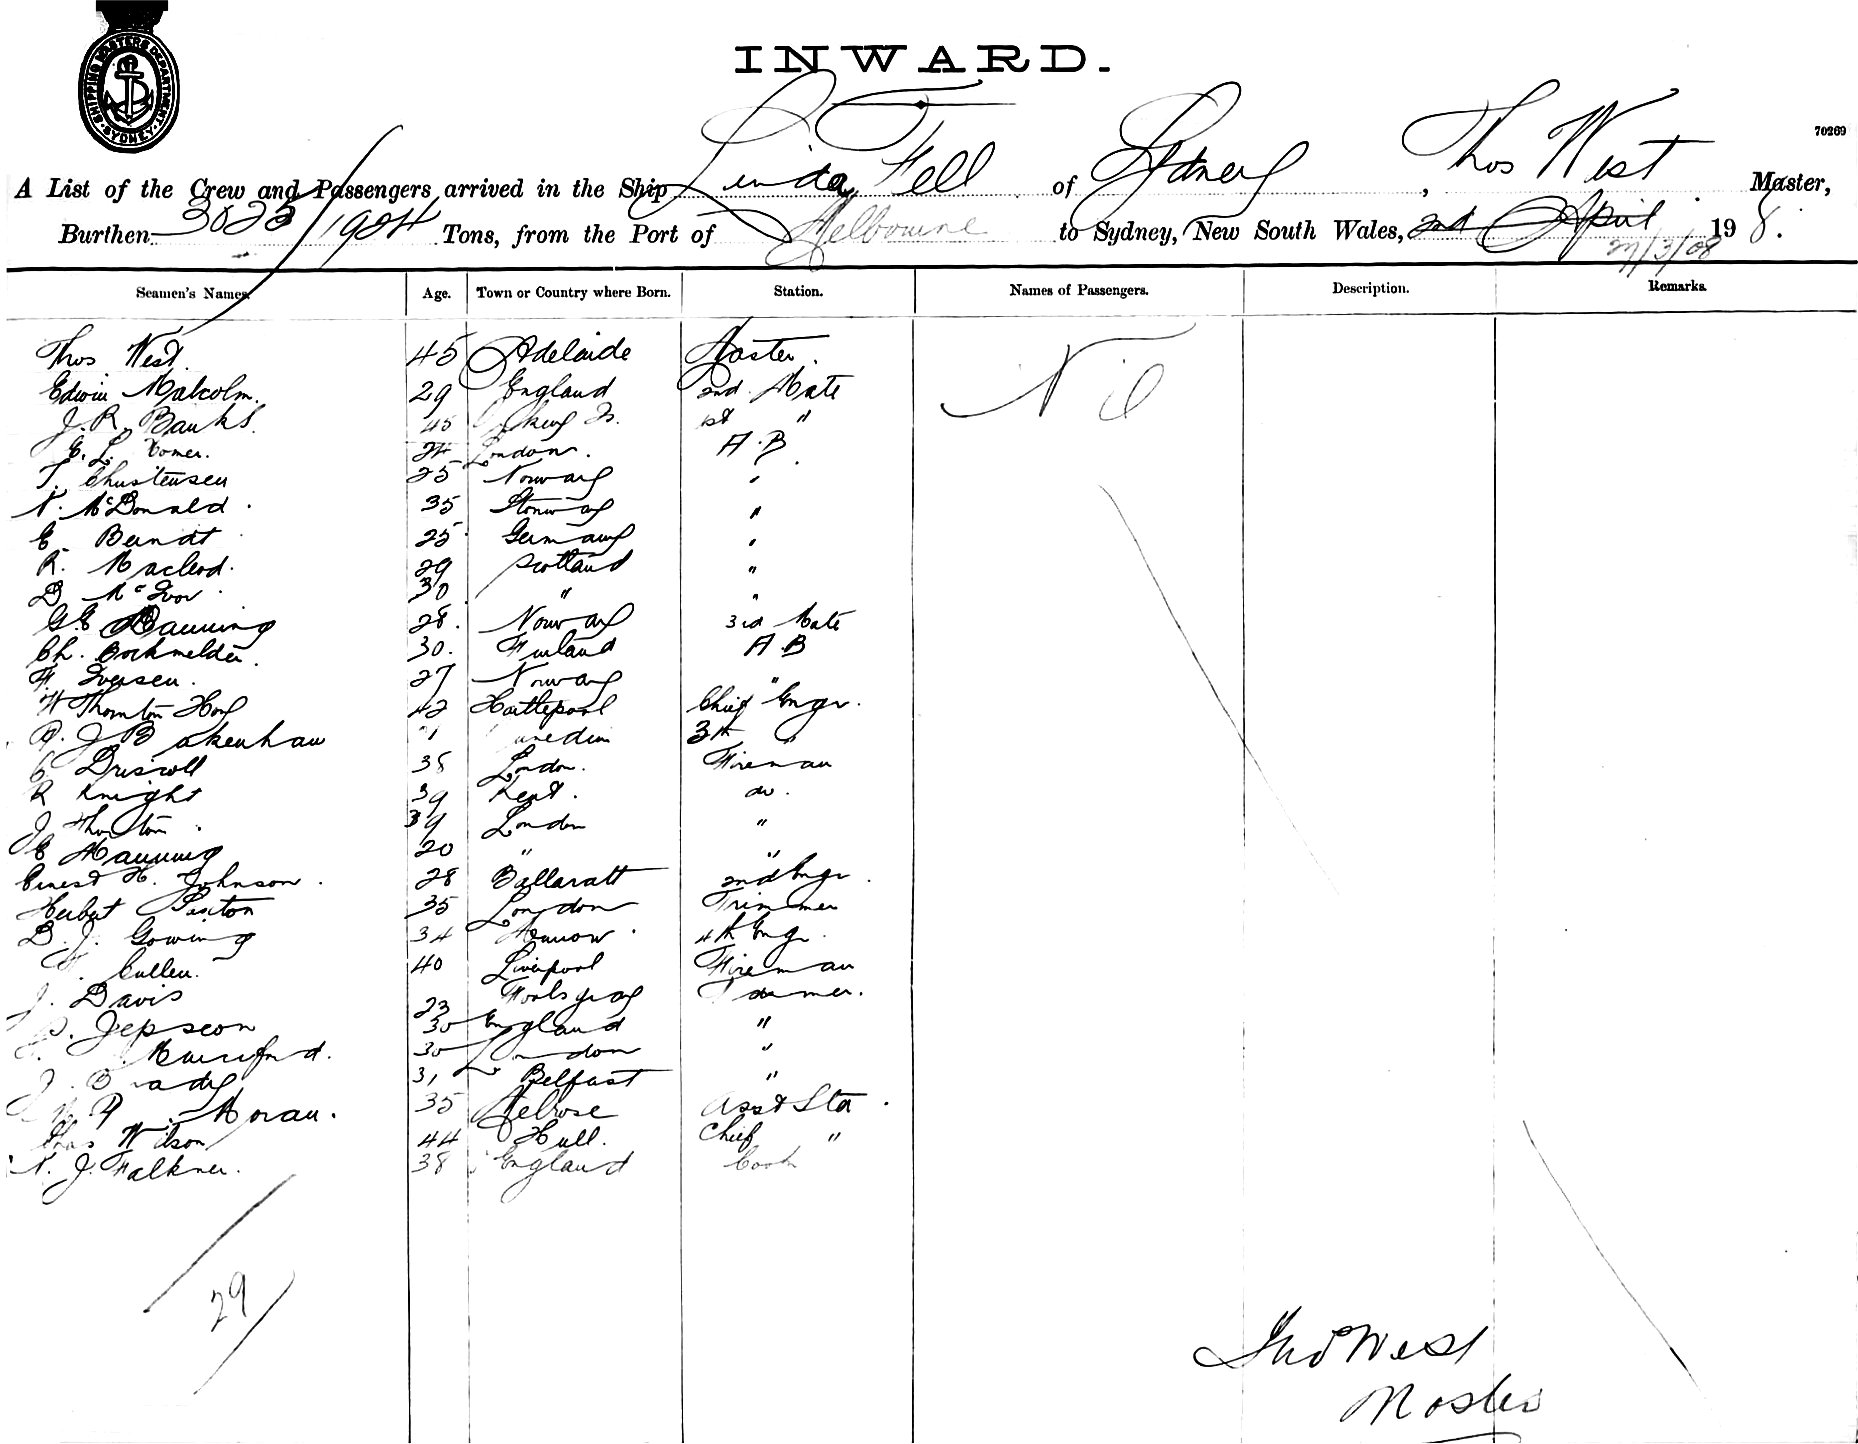 SHIPPING MASTERS DEPARTMENT. SYDNEY
INWARD.
70269
A List of the Crew and Passengers arrived in the Ship Linda Fell of Sydney, Thos West Master,
Burthen 3023/1984 Tons, from the Port of Melbourne to Sydney, New South Wales, 2nd April 198.
27/3/08
Seamen's Names. Age. Town or Country where Born. Station. Names of Passengers. Description. Remarks.
Thos West. 45 Adelaide Master. Nil
Edwin Malcolm. 29 England 2nd. Mate
J. R. Banks. 45 1st "
E. L. 24 London. A.B
T. Christensen 25 Norway "
N. McDonald. 35 Stornway "
E. Berndt 25 Germany "
R. Macleod. 29 Scotland "
D McIvor. 30 " "
G.E Manning 28. Norway 3rd Mate
Ch. 30. Finland A.B
F Iversen. 27 Norway "
H Thornton Hoy 42 Hartlepool Chief Engr.
P. J B akenhaw 1 unedin 3th "
C Driscoll 38 London. Fireman
R Knight 39 Kent. do.
J Thornton. 39 London "
E Manning 20 " "
Ernest H. Johnson. 28 Ballaratt 2nd Engr.
Herbert Sexton 35 London Trimmer
D. J. Gowing 34 Harrow. 4th Engr.
Cullen. 40 Liverpool Fireman
J. Davis 23 Footsgray
Jepseon 30 England "
30 London "
J. B ady 31 Belfast "
P. Moran. 35 Melrose Asst Std.
Thos Wilson 44 Hull. Chief "
N. J. Falkner. 38 England Cook
29
Thos West
Master